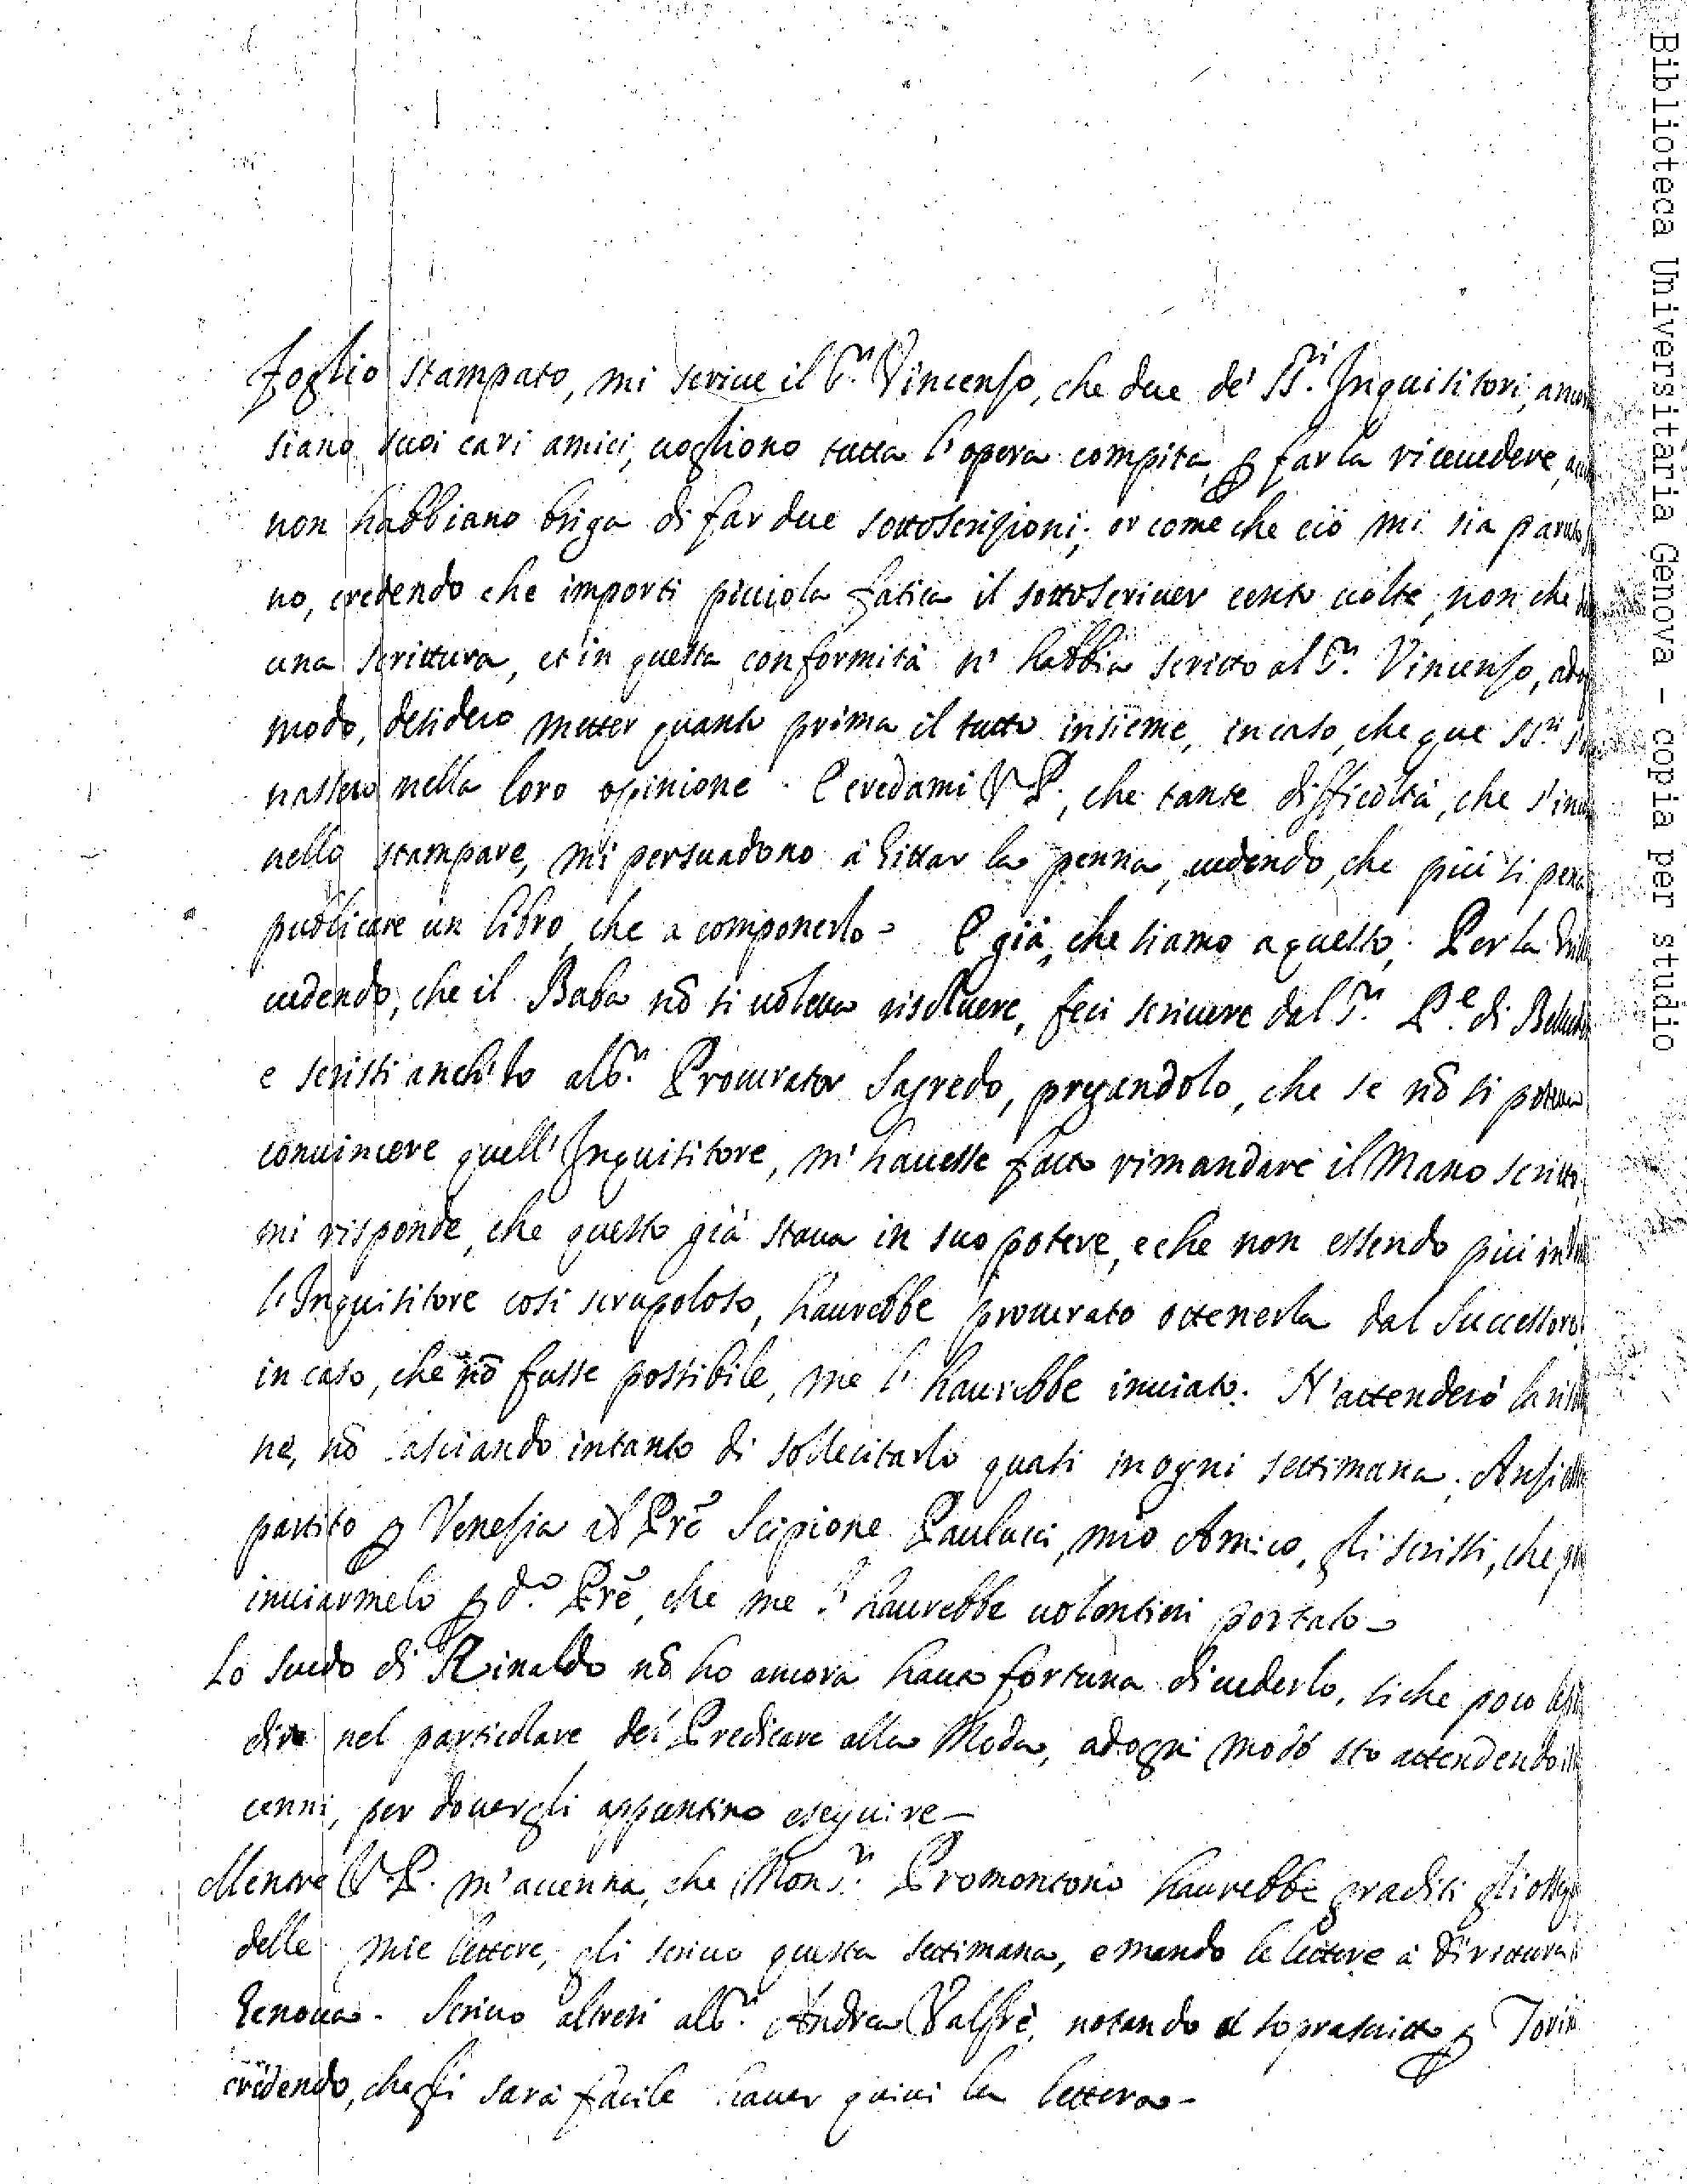 foglio stampato, mi scriue il S.r Vincenso, che due de' SS.ri Inquisitori,
siano suoi cari amici, uogliono tutta l'opera compita, p farla riceuedere,
non habbiano briga di far due sottoscrizioni; or come che ciò mi sia
no, credendo che importi picciola fatica il sottoscriuer cento uolte, non che
una scrittura, et in questa conformità n' habbia scritto al S.r Vincenso,
modo, desidero metter quanto prima il tutto insieme, in caso, che que SS.ri
nassero nella loro opinione. E credami V.P., che tante difficoltà, che
nello stampare, mi persuadono à gittar la penna, uedendo, che più si pena
publicare un libro, che a componerlo. E già, che siamo a questo, Per la
uedendo, che il Baba nō si uoleua risoluere, feci scriuere dal S.r P.e di
e scrissi anch'io al S.r Procurator Sagredo, pregandolo, che se nō si poteua
conuincere quell'Inquisitore, m' hauesse fatto rimandare il Mano scritto,
mi risponde, che questo già staua in suo potere, e che non essendo più
l'Inquisitore così scrupoloso, haurebbe procurato ottenerla dal Successore
in caso, che nō fusse possibile, me l' haurebbe inuiato. N'attenderò
ne, nō lasciando intanto di sollecitarlo quasi in ogni settimana. Ansi
partito p Venesia il Prē Scipione Paulucci, mio Amico, gli scrissi, che
inuiarmelo p d.o Prē, che me l' haurebbe uolentieri portato
Lo scudo di Rinaldo nō ho ancora hauto fortuna di uederlo, siche poco
dire nel particolare del Predicare alla Moda, ad ogni modo sto attendendo
cenni, per douergli appuntino eseguire
Mentre V.P. m'accenna, che Mons.r Promontorio haurebbe graditi gli
delle mie lettere, gli scriuo questa settimana, e mando le lettere à dirittura
Genoua. Scriuo altresi al S.r Andrea Valfrè, notando il soprascritto p
credendo, che gli sarà facile hauer quiui la lettera
Biblioteca Universitaria Genova - copia per studio